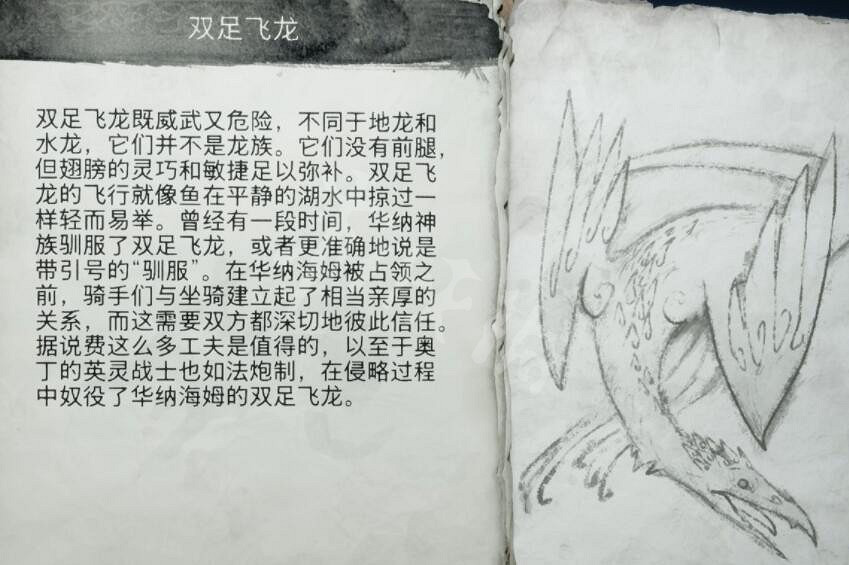 双足飞龙
双足飞龙既威武又危险，不同于地龙和
水龙，它们并不是龙族。它们没有前腿，
但翅膀的灵巧和敏捷足以弥补。双足飞
龙的飞行就像鱼在平静的湖水中掠过一
样轻而易举。曾经有一段时间，华纳神
族驯服了双足飞龙，或者更准确地说是
带引号的“驯服”。在华纳海姆被占领之
前，骑手们与坐骑建立起了相当亲厚的
关系，而这需要双方都深切地彼此信任。
据说费这么多工夫是值得的，以至于奥
丁的英灵战士也如法炮制，在侵略过程
中奴役了华纳海姆的双足飞龙。